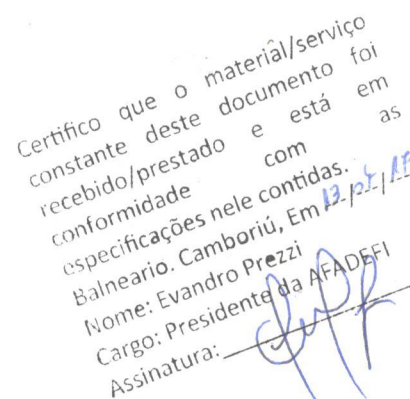 Certifico que o material/serviço
constante deste documento foi
recebido/prestado e está em
conformidade com as
especificações nele contidas.
Balneario. Camboriú, Em 13 / /
Nome: Evandro Prezzi
Cargo: Presidente da AFADEFI
Assinatura: